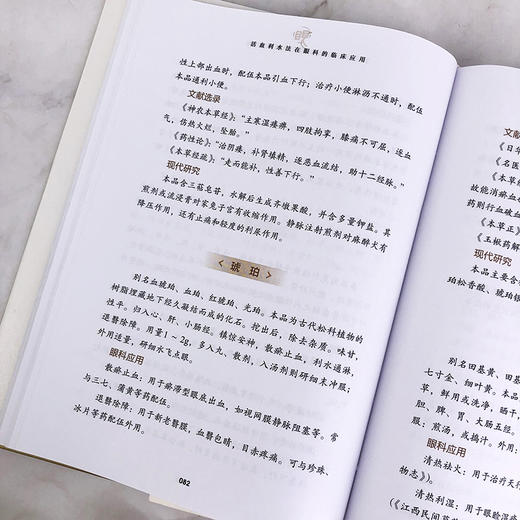 活血利水法在眼科的临床应用
性上部出血时，配伍本品引血下行；治疗小便淋沥不通时，配伍
本品通利小便。
文献选录
《神农本草经》：“主寒湿痿痹，四肢拘挛，膝痛不可屈，逐血
气，伤热火烂，堕胎。”
《药性论》：“治阴痿，补肾填精，逐恶血流结，助十二经脉。”
《本草经疏》：“走而能补，性善下行。”
现代研究
本品含三萜皂苷，水解后生成齐墩果酸，并含多量钾盐。其
煎剂或流浸膏对家兔子宫有收缩作用。静脉注射煎剂对麻醉犬有
降压作用，还有止痛和轻度的利尿作用。
琥珀
别名血琥珀、血珀、红琥珀、光珀。本品为古代松科植物的
树脂埋藏地下经久凝结而成的化石。挖出后，除去杂质。味甘，
性平。归入心、肝、小肠经。镇惊安神，散瘀止血，利水通淋，
退翳除障。用量1～2g，多入丸、散剂，入汤剂则研细末冲服；
外用适量，研细水飞点眼。
眼科应用
散瘀止血：用于瘀滞型眼底出血，如视网膜静脉阻塞等。常
与三七、蒲黄等药配伍。
退翳除障：用于新老翳膜，血翳包睛，目赤疼痛。可与珍珠、
冰片等药配伍外用。
082
《日华
《名医
故能消瘀血
药则行血破
《本草正》
《玉楸药解
现代研究
本品主要含
珀松香酸、琥珀银
别名田基黄、田
七寸金、细叶黄。本
草，鲜用或洗净，晒干
胆、脾、胃、大肠五经。
服：煎汤，或捣汁。外用：
眼科应用
清热祛火：用于治疗天行
物志》）。
清热利湿：用于眼睑湿疹
（《江西民间草药